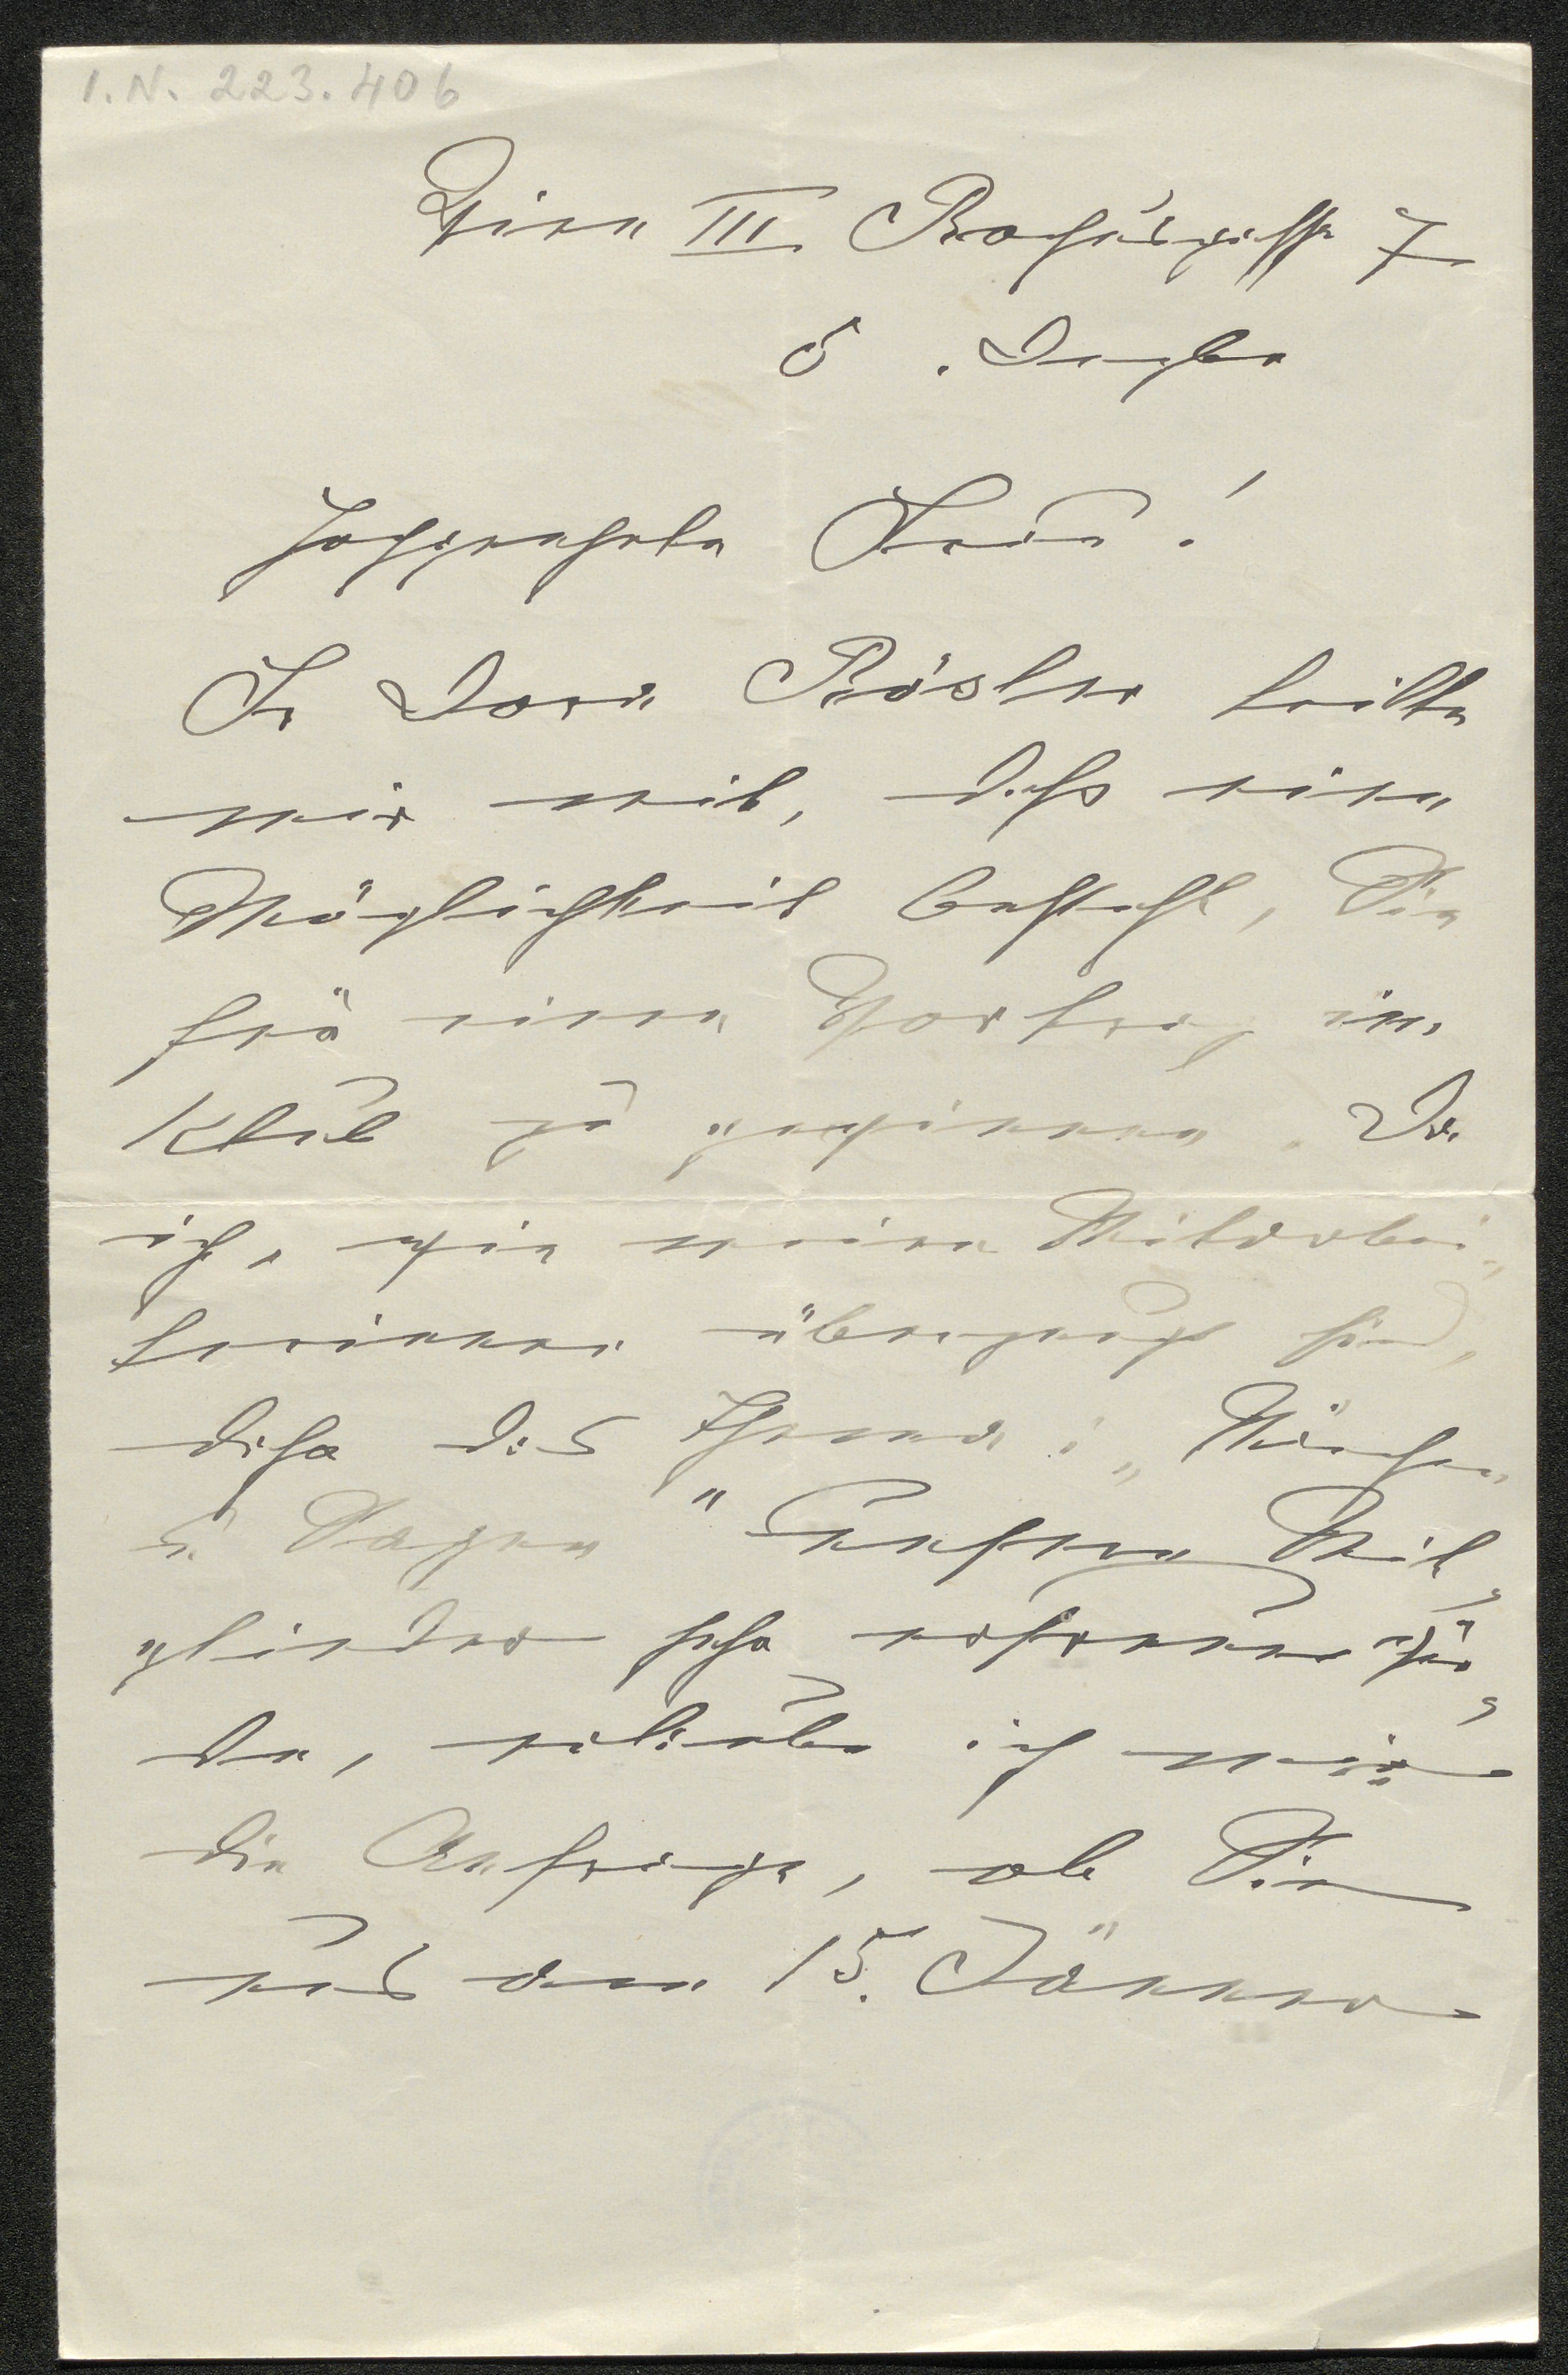 I.N. 223.406
Wien III Rochusgasse 7
5. Dezber
Hochgeehrte Frau!
Fr Dora Rösler teilte
mir mit, daß eine
Möglichkeit besteht, Sie
für einen Vortrag im
Klub zu gewinnen. Da
ich, wie meine Mitarbei„
terinnen überzeugt sind,
daß das Thema: „Märchen
u. Sagen" unsere Mit„
glieder sehr erfreuen wür„
de, erlaube ich mir
die Anfrage, ob Sie
uns am 15. Jänner